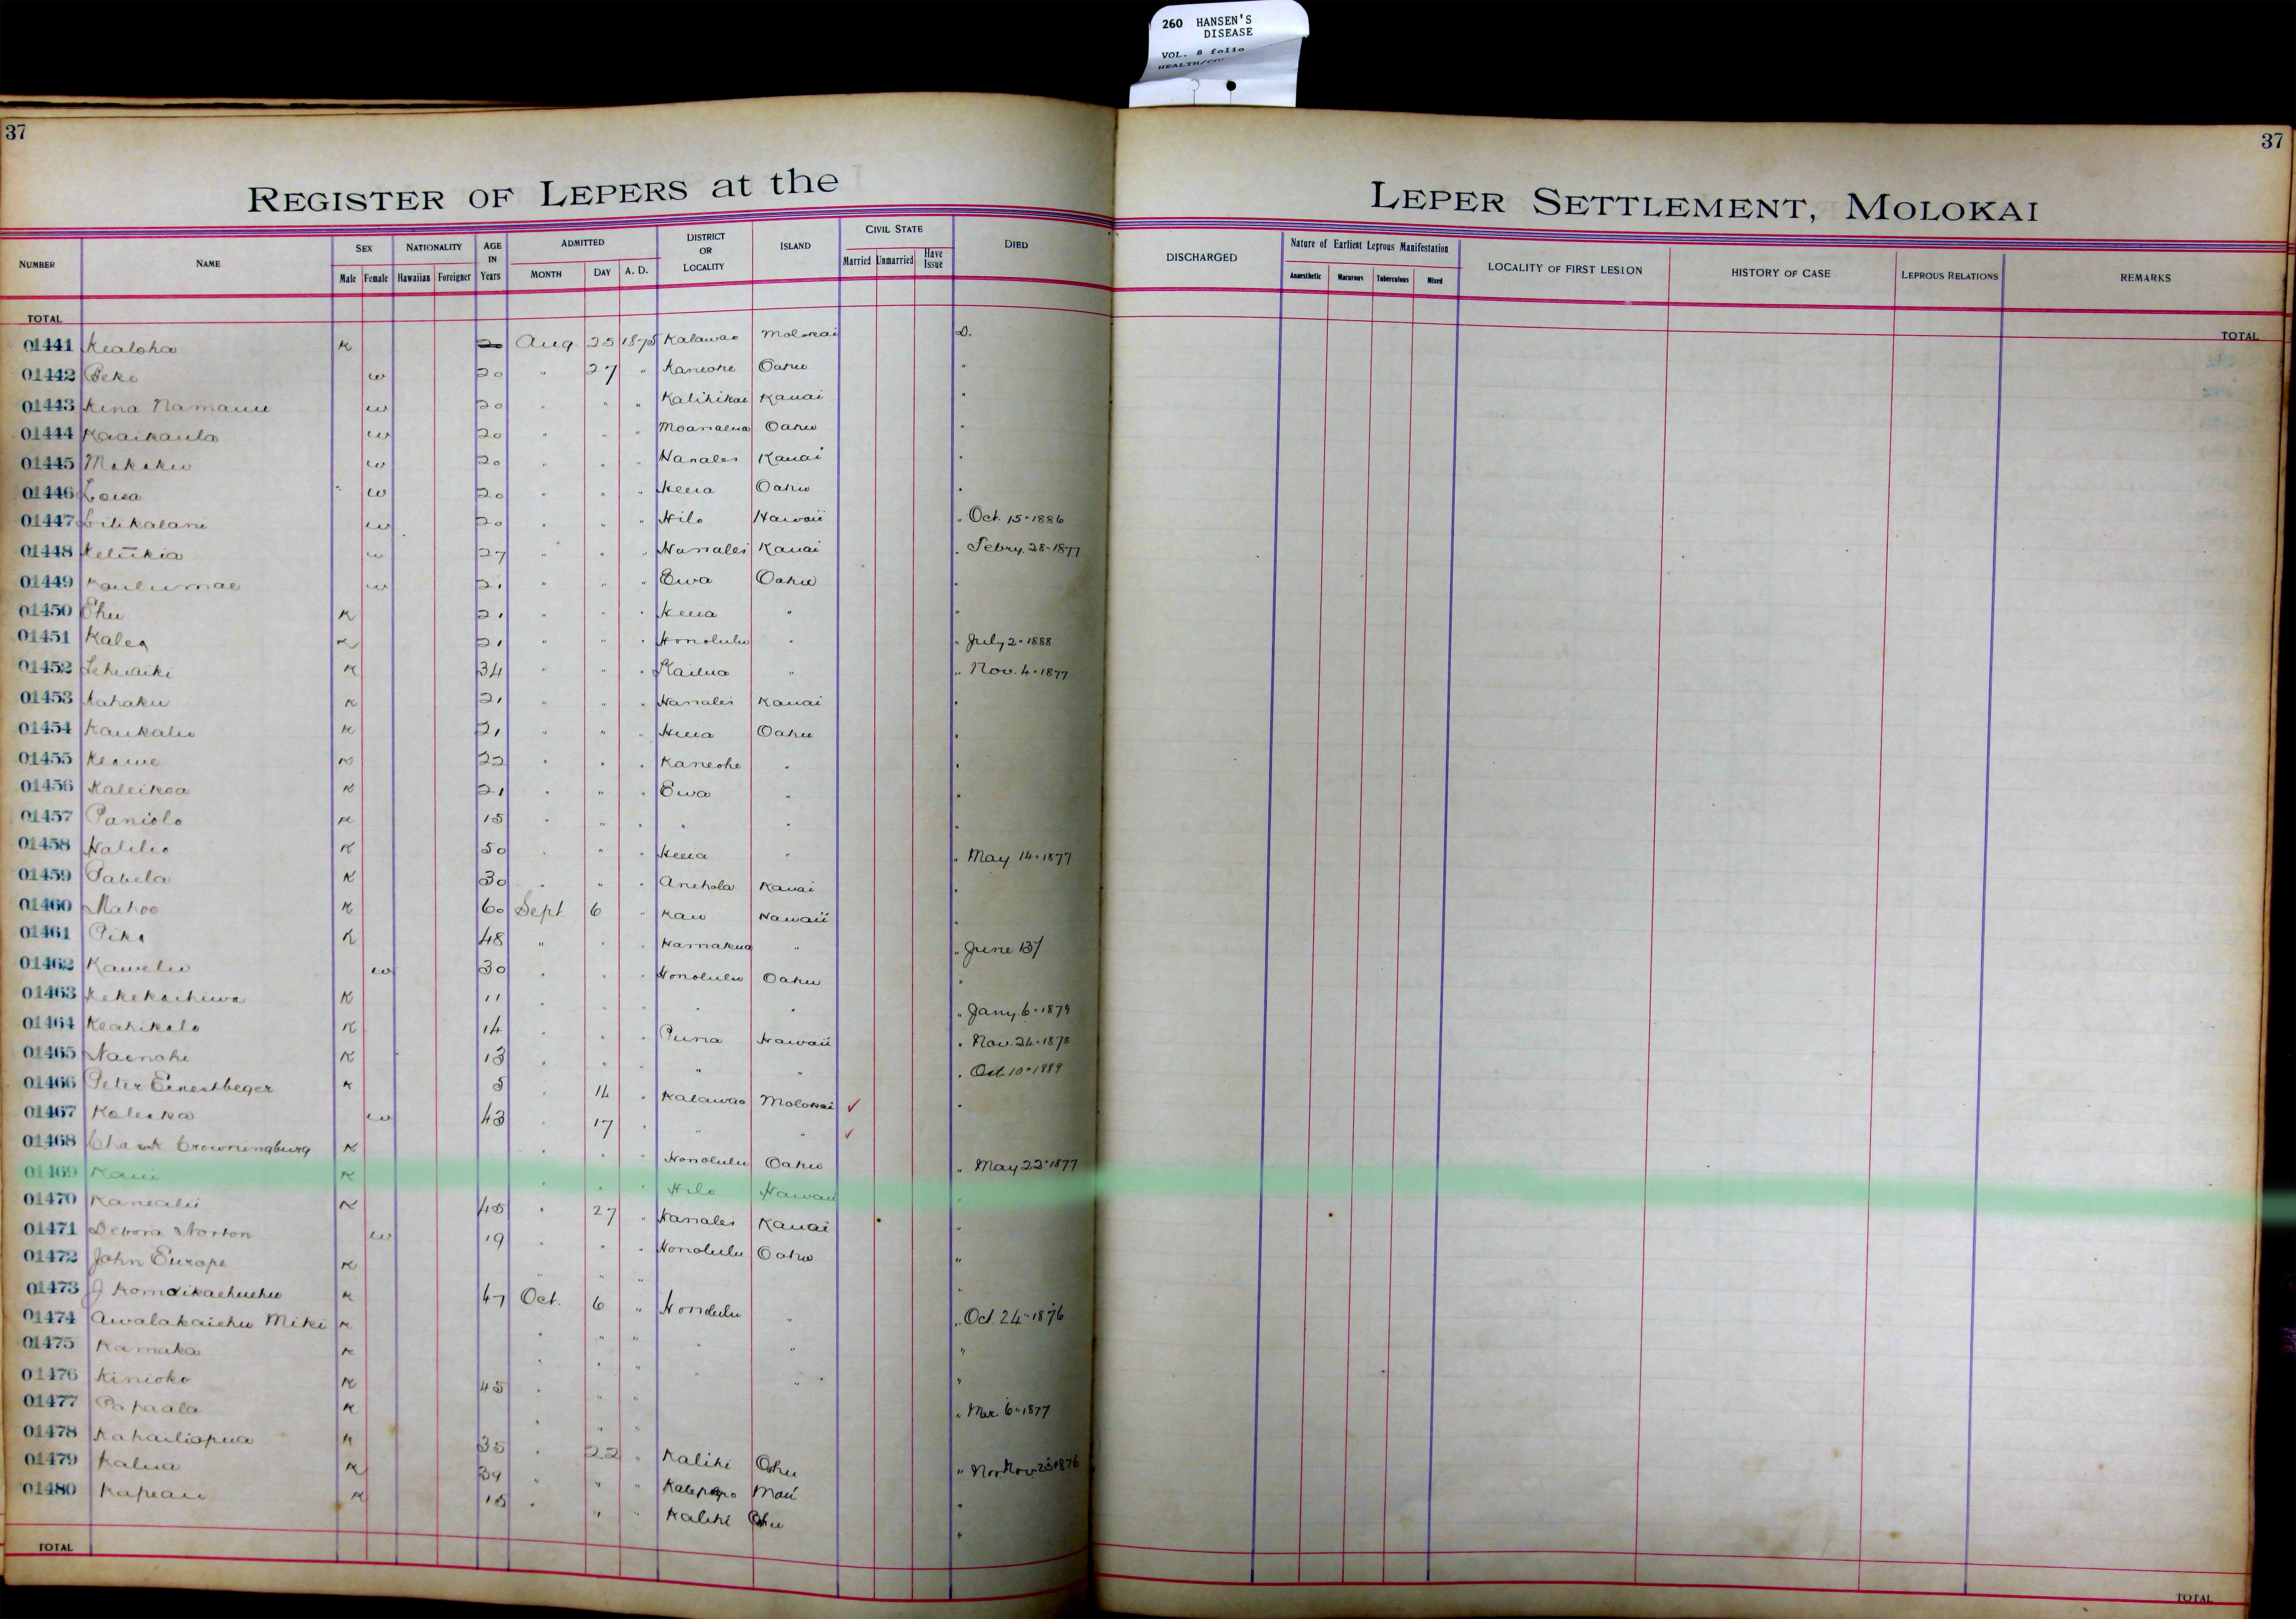 260 HANSEN'S
DISEASE
VOL. 8 folio
37
37
REGISTER OF LEPERS at the
LEPER SETTLEMENT, MOLOKAI
NUMBER NAME SEX Male Female NATIONALITY Hawaiian Foreigner AGE IN Years ADMITTED MONTH DAY A. D. DISTRICT OR LOCALITY ISLAND CIVIL STATE Married Unmarried Have Issue DIED
DISCHARGED Nature of Earliest Leprous Manifestation Anaesthetic Macurous Tuberculous Mixed LOCALITY OF FIRST LESION HISTORY OF CASE LEPROUS RELATIONS REMARKS
TOTAL
TOTAL
01441 Kealoha K 20 Aug. 25 1875 Kalawao Molokai D.
01442 Peke w 20 " 27 " Kaneohe Oahu "
01443 Kina Namauu w 20 " " " Kalihikai Kauai "
01444 Kaaikaula w 20 " " " Moanalua Oahu "
01445 w 20 " " " Hanalei Kauai "
01446 Loisa w 20 " " " Heeia Oahu "
01447 Lilikalani w 20 " " " Hilo Hawaii " Oct. 15 " 1886
01448 Keliikia w 27 " " " Hanalei Kauai " Febry. 28 " 1877
01449 Kaulumae w 21 " " " Ewa Oahu "
01450 Ehu K 21 " " " Heeia " "
01451 Kalea K 21 " " " Honolulu " " July 2 " 1888
01452 Lehuaiki K 34 " " " Kailua " " Nov. 4 " 1877
01453 Kahaku K 21 " " " Hanalei Kauai "
01454 Kaukaliu K 21 " " " Heeia Oahu "
01455 Keawe K 22 " " " Kaneohe " "
01456 Kaleikoa K 21 " " " Ewa " "
01457 Paniolo K 15 " " " " " "
01458 Halilio K 50 " " " Heeia " " May 14 " 1877
01459 Pabela K 30 " " " Anehola Kauai "
01460 Mahoe K 60 Sept 6 " Kau Hawaii "
01461 Pika K 48 " " " Hamakua " " June 137
01462 Kawelu w 30 " " " Honolulu Oahu "
01463 Kekekachiwa K 11 " " " " " " Jany 6 " 1879
01464 Keahikolo K 14 " " " Puna Hawaii " Nov. 24 " 1878
01465 Nainohi K 13 " " " " " " Oct 10 " 1889
01466 Peter Ernestbeger K 5 " 14 " Kalawao Molokai ✓ "
01467 Kaleoka w 43 " 17 " " " ✓
01468 Crowningburg K " " " Honolulu Oahu " May 22 " 1877
01469 Kaui K " " " Hilo Hawaii "
01470 Kanealii K 45 " 27 " Hanalei Kauai "
01471 Debora Norton w 19 " " " Honolulu Oahu "
01472 John Europe K " " " "
01473 J Komoikaehuehu K 47 Oct. 6 " Honolulu " " Oct. 24 " 1876
01474 Awalakaiehu Miki K " " " " " "
01475 Kamaka K " " " " " "
01476 Kinioko K 45 " " " " Mar. 6 " 1877
01477 Papaala K " " "
01478 Kahailiopua K 35 " 22 " Kalihi Oahu " Nov. 23 1876
01479 Kalua K 39 " " " Kalepopo Maui "
01480 Kapeau K 15 " " " Kalihi Oahu "
TOTAL
TOTAL